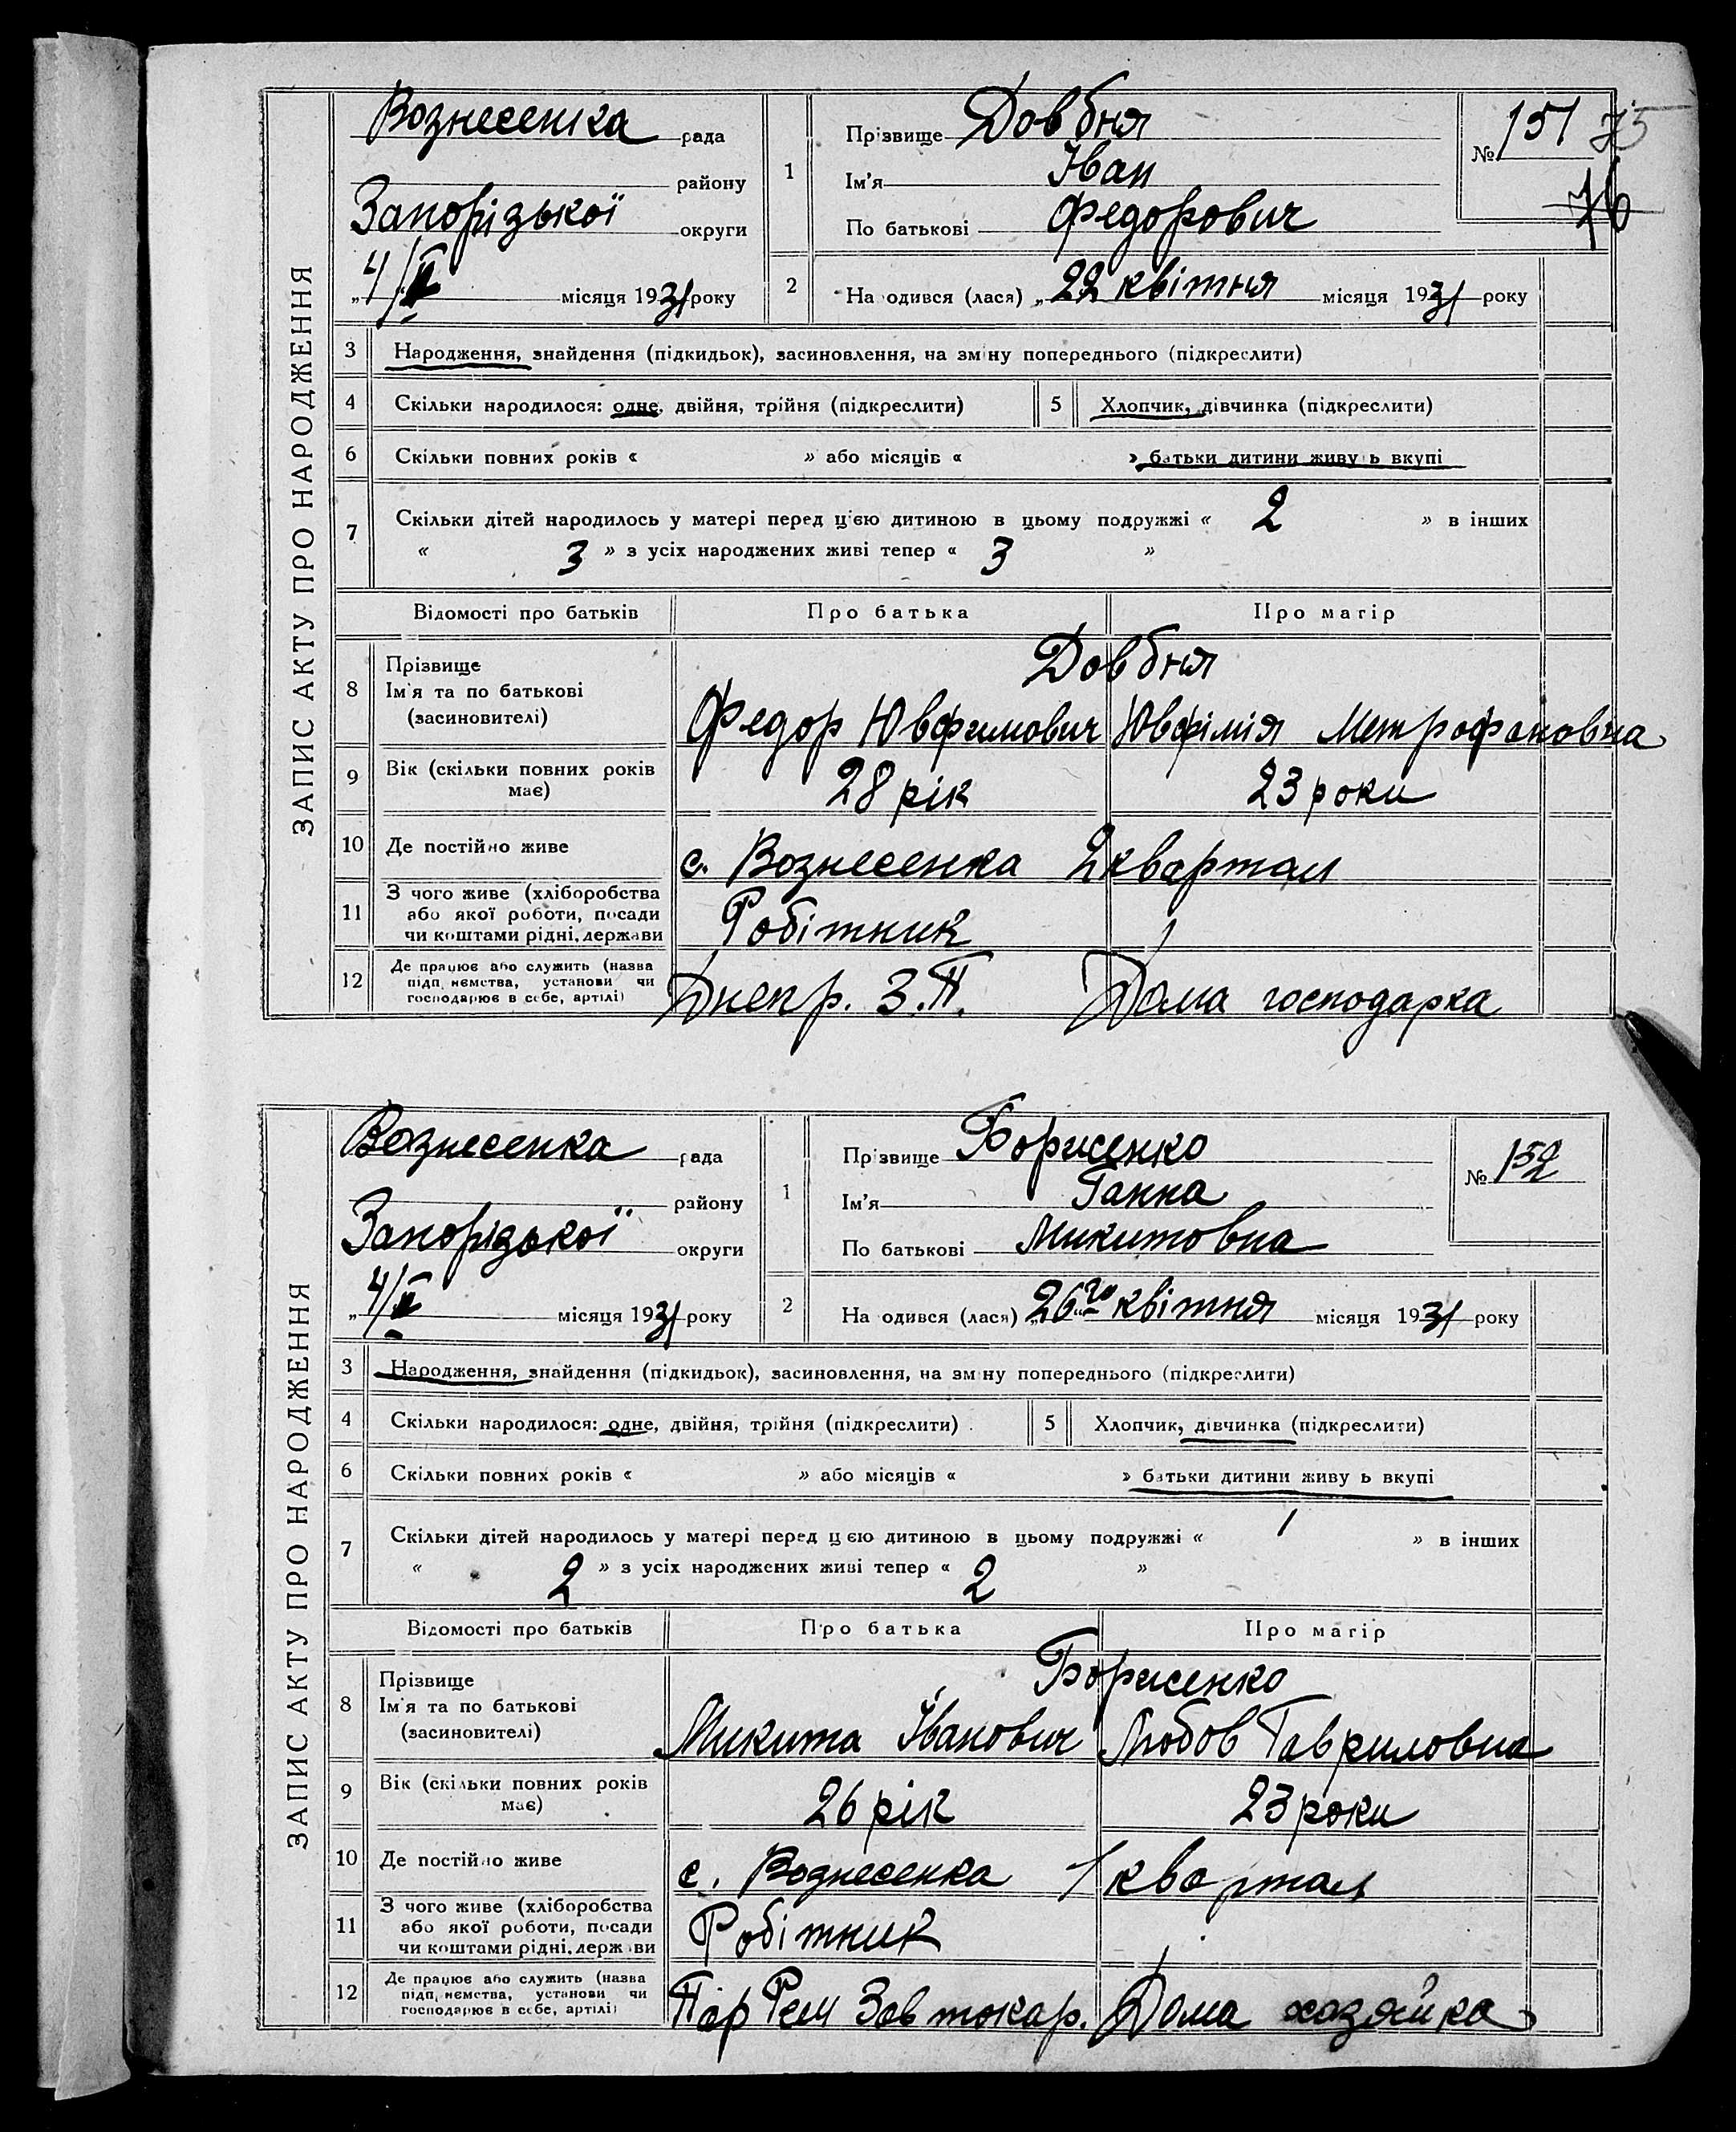 ЗАПИС АКТУ ПРО НАРОДЖЕННЯ
Вознесенка рада
району
Запорізької округи
„4/V місяця 1931 року
1
Прізвище Довбня
Ім'я Іван
По батькові Федорович
№ 151 75
76
2
На одився (лася) „22 квітня місяця 1931 року
3 Народження, знайдення (підкидьок), засиновлення, на зм ну попереднього (підкреслити)
4 Скільки народилося: одне, двійня, трійня (підкреслити) 5 Хлопчик, дівчинка (підкреслити)
6 Скільки повних років « » або місяців « » батьки дитини живу ь вкупі
7 Скільки дітей народилось у матері перед цією дитиною в цьому подружжі « 2 » в інших
« 3 » з усіх народжених живі тепер « 3 »
Відомості про батьків Про батька Про матір
8 Прізвище
Ім'я та по батькові
(засиновителі)
Довбня
Федор Ювфимович Ювфімія Метрофановна
9 Вік (скільки повних років має) 28 рік 23 роки
10 Де постійно живе с. Вознесенка 2 квартал
11 З чого живе (хліборобства
або якої роботи, посади
чи коштами рідні, держави
Робітник
12 Де працює або служить (назва
підп ємства, установи чи
господарює в себе, артілі)
Днепр. З.П. Дома господарка
ЗАПИС АКТУ ПРО НАРОДЖЕННЯ
Вознесенка рада
району
Запорізької округи
„4/V місяця 1931 року
1
Прізвище Борисенко
Ім'я Ганна
По батькові Микитовна
№ 152
2
На одився (лася) „26го квітня місяця 1931 року
3 Народження, знайдення (підкидьок), засиновлення, на зм ну попереднього (підкреслити)
4 Скільки народилося: одне, двійня, трійня (підкреслити) 5 Хлопчик, дівчинка (підкреслити)
6 Скільки повних років « » або місяців « » батьки дитини живу ь вкупі
7 Скільки дітей народилось у матері перед ц єю дитиною в цьому подружжі « 1 » в інших
« 2 » з усіх народжених живі тепер « 2 »
Відомості про батьків Про батька Про матір
8 Прізвище
Ім'я та по батькові
(засиновителі)
Борисенко
Микита Іванович Любов Гавриловна
9 Вік (скільки повних років має) 26 рік 23 роки
10 Де постійно живе с. Вознесенка 1 квартал
11 З чого живе (хліборобства
або якої роботи, посади
чи коштами рідні, держ ви
Робітник
12 Де працює або служить (назва
підп ємства, установи чи
господарює в себе, артілі)
Пар Рем Зав токар. Дома хазяйка